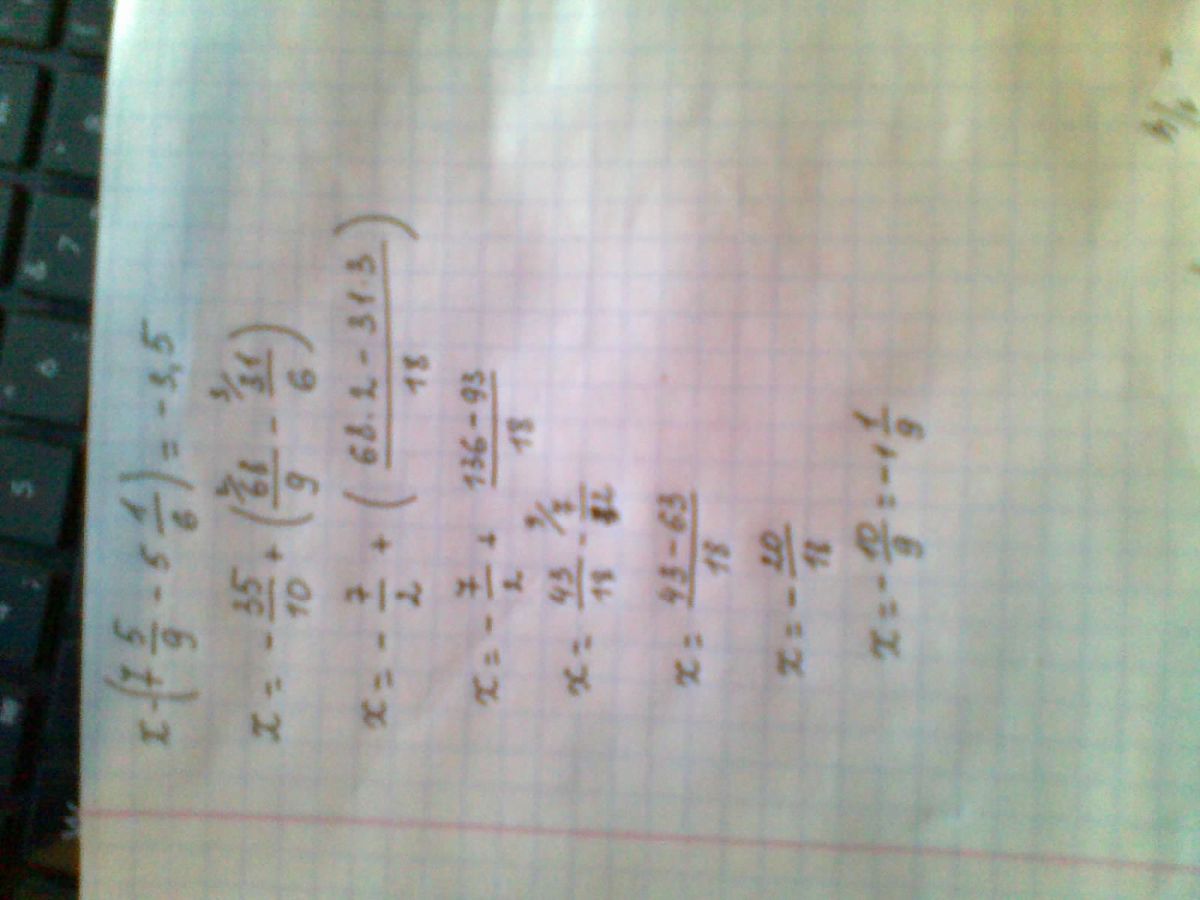 x - (7 5/9 - 5 1/6) = -3,5
x = - 35/10 + (2/ 68/9 - 3/ 31/6)
x = - 7/2 + (68·2-31·3 / 18)
x = - 7/2 + 136-93/18
x = 43/18 - 9/ 7/2
x = 43-63/18
x = - 20/18
x = - 10/9 = -1 1/9